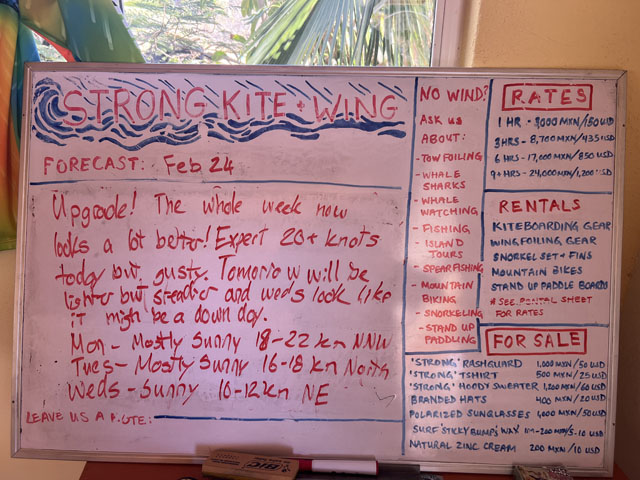 STRONG KITE + WING
FORECAST: Feb 24
Upgrade! The whole week now
looks a lot better! Expert 20+ knots
today but gusty. Tomorrow will be
lighter but steadier and weds look like
it might be a down day.
Mon - Mostly Sunny 18-22 kn NNW
Tues - Mostly Sunny 16-18 kn North
Weds - Sunny 10-12 kn NE
LEAVE US A NOTE:
NO WIND?
ASK US
ABOUT:
- TOW FOILING
- WHALE
SHARKS
- WHALE
WATCHING
- FISHING
- ISLAND
TOURS
- SPEARFISHING
- MOUNTAIN
BIKING
- SNORKELING
- STAND UP
PADDLING
RATES
1 HR - 3000 MXN/150 USD
3HRS - 8,700 MXN/435 USD
6 HRS - 17,000 MXN/850 USD
9+ HRS - 24,000 MXN/1,200 USD
RENTALS
KITEBOARDING GEAR
WINGFOILING GEAR
SNORKEL SET + FINS
MOUNTAIN BIKES
STAND UP PADDLE BOARDS
* SEE RENTAL SHEET
FOR RATES
FOR SALE
'STRONG' RASHGUARD 1,000 MXN/50 USD
'STRONG' TSHIRT 500 MXN/25 USD
'STRONG' HOODY SWEATER 1,200 MXN/60 USD
BRANDED HATS 400 MXN/20 USD
POLARIZED SUNGLASSES 1,000 MXN/50 USD
SURF 'STICKY BUMPS' WAX 100-200 MXN/5-10 USD
NATURAL ZINC CREAM 200 MXN/10 USD
BIC